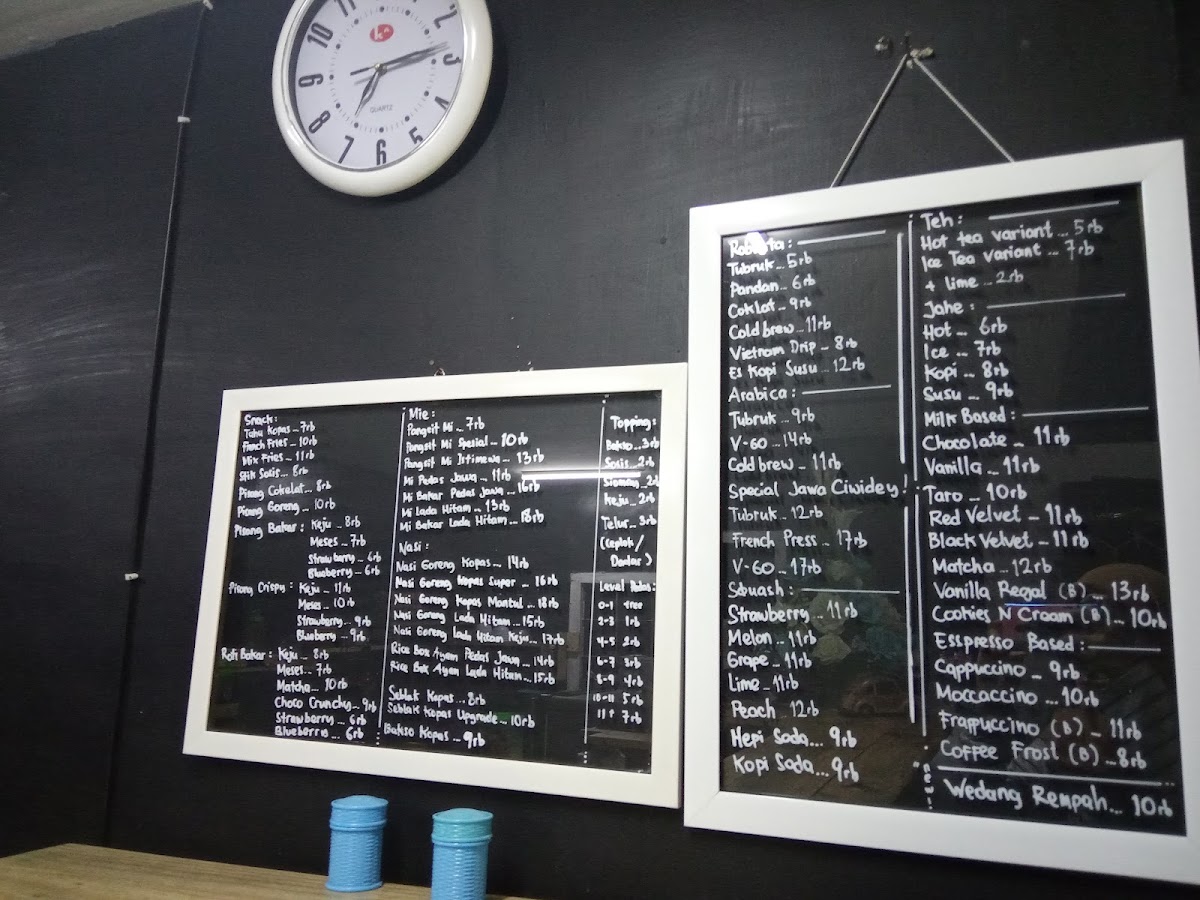 11
2
10
3
9
QUARTZ
8
4
7
6
5
Snack :
Tahu Kopas ... 7rb
French Fries ... 10rb
Mix Fries ... 11rb
Stik Sosis ... 8rb
Pisang Cokelat ... 8rb
Pisang Goreng ... 10rb
Pisang Bakar : Keju ... 8rb
Meses ... 7rb
Strawberry ... 6rb
Blueberry ... 6rb
Pisang Crispy : Keju ... 11rb
Meses ... 10rb
Strawberry ... 9rb
Blueberry ... 9rb
Roti Bakar : Keju ... 8rb
Meses ... 7rb
Matcha ... 10rb
Choco Crunchy ... 9rb
Strawberry ... 6rb
Blueberry ... 6rb
Mie :
Pangsit Mi ... 7rb
Pangsit Mi Spesial ... 10rb
Pangsit Mi Istimewa ... 13rb
Mi Pedas Jawa ... 11rb
Mi Bakar Pedas Jawa ... 16rb
Mi Lada Hitam ... 13rb
Mi Bakar Lada Hitam ... 18rb
Nasi :
Nasi Goreng Kopas ... 14rb
Nasi Goreng Kopas Super ... 16rb
Nasi Goreng Kopas Mantul ... 18rb
Nasi Goreng Lada Hitam ... 15rb
Nasi Goreng Lada Hitam Keju ... 17rb
Rice Box Ayam Pedas Jawa ... 14rb
Rice Box Ayam Lada Hitam ... 15rb
Seblak Kopas ... 8rb
Seblak Kopas Upgrade ... 10rb
Bakso Kopas ... 9rb
Topping :
Bakso ... 3rb
Sosis ... 2rb
Siomay ... 2rb
Keju ... 2rb
Telur ... 3rb
(Ceplok /
Dadar)
Level Pedas :
0-1 free
2-3 1rb
4-5 2rb
6-7 3rb
8-9 4rb
10-11 5rb
11+ 7rb
Robusta :
Tubruk ... 5rb
Pandan ... 6rb
Coklat ... 9rb
Cold brew ... 11rb
Vietnam Drip ... 8rb
Es Kopi Susu ... 12rb
Arabica :
Tubruk ... 9rb
V-60 ... 14rb
Cold brew ... 11rb
Special Jawa Ciwidey !
Tubruk ... 12rb
French Press ... 17rb
V-60 ... 17rb
Squash :
Strawberry ... 11rb
Melon ... 11rb
Grape ... 11rb
Lime ... 11rb
Peach ... 12rb
Hepi Soda ... 9rb
Kopi Soda ... 9rb
Teh :
Hot tea variant ... 5rb
Ice Tea variant ... 7rb
+ lime ... 2rb
Jahe :
Hot ... 6rb
Ice ... 7rb
Kopi ... 8rb
Susu ... 9rb
Milk Based :
Chocolate ... 11rb
Vanilla ... 11rb
Taro ... 10rb
Red Velvet ... 11rb
Black Velvet ... 11rb
Matcha ... 12rb
Vanilla Regal (B) ... 13rb
Cookies N Cream (B) ... 10rb
Esspresso Based :
Cappuccino ... 9rb
Moccaccino ... 10rb
Frappuccino (B) ... 11rb
Coffee Frost (B) ... 8rb
"new!"
Wedang Rempah ... 10rb